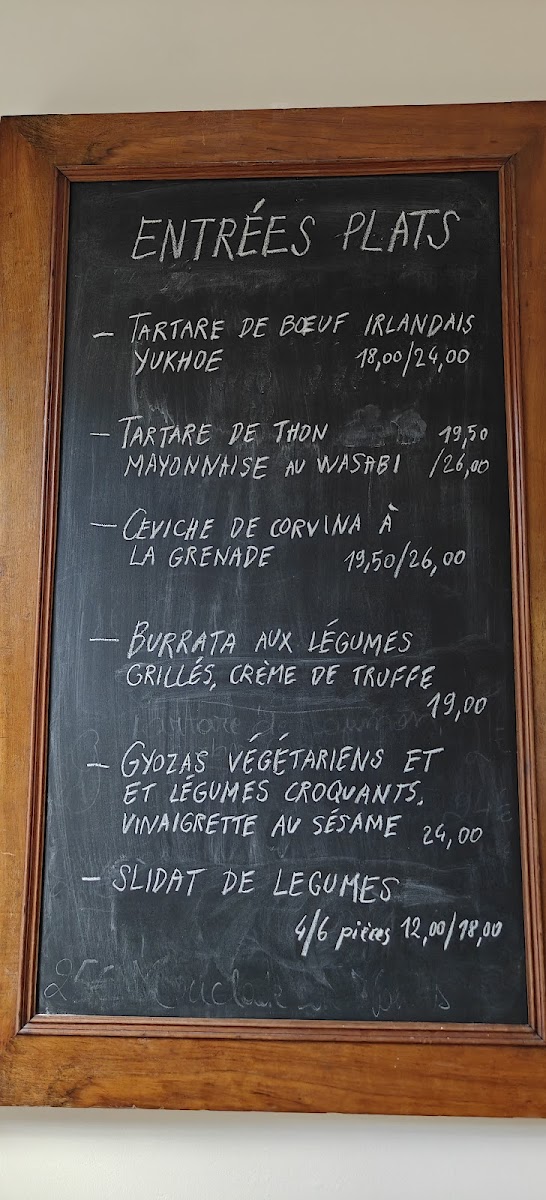 ENTRÉES PLATS
- TARTARE DE BŒUF IRLANDAIS
YUKHOE 18,00/24,00
- TARTARE DE THON 19,50
MAYONNAISE AU WASABI /26,00
- CEVICHE DE CORVINA À
LA GRENADE 19,50/26,00
- BURRATA AUX LÉGUMES
GRILLÉS, CRÈME DE TRUFFE
19,00
- GYOZAS VÉGÉTARIENS ET
ET LÉGUMES CROQUANTS.
VINAIGRETTE AU SÉSAME 24,00
- SLIDAT DE LEGUMES
4/6 pièces 12,00/18,00